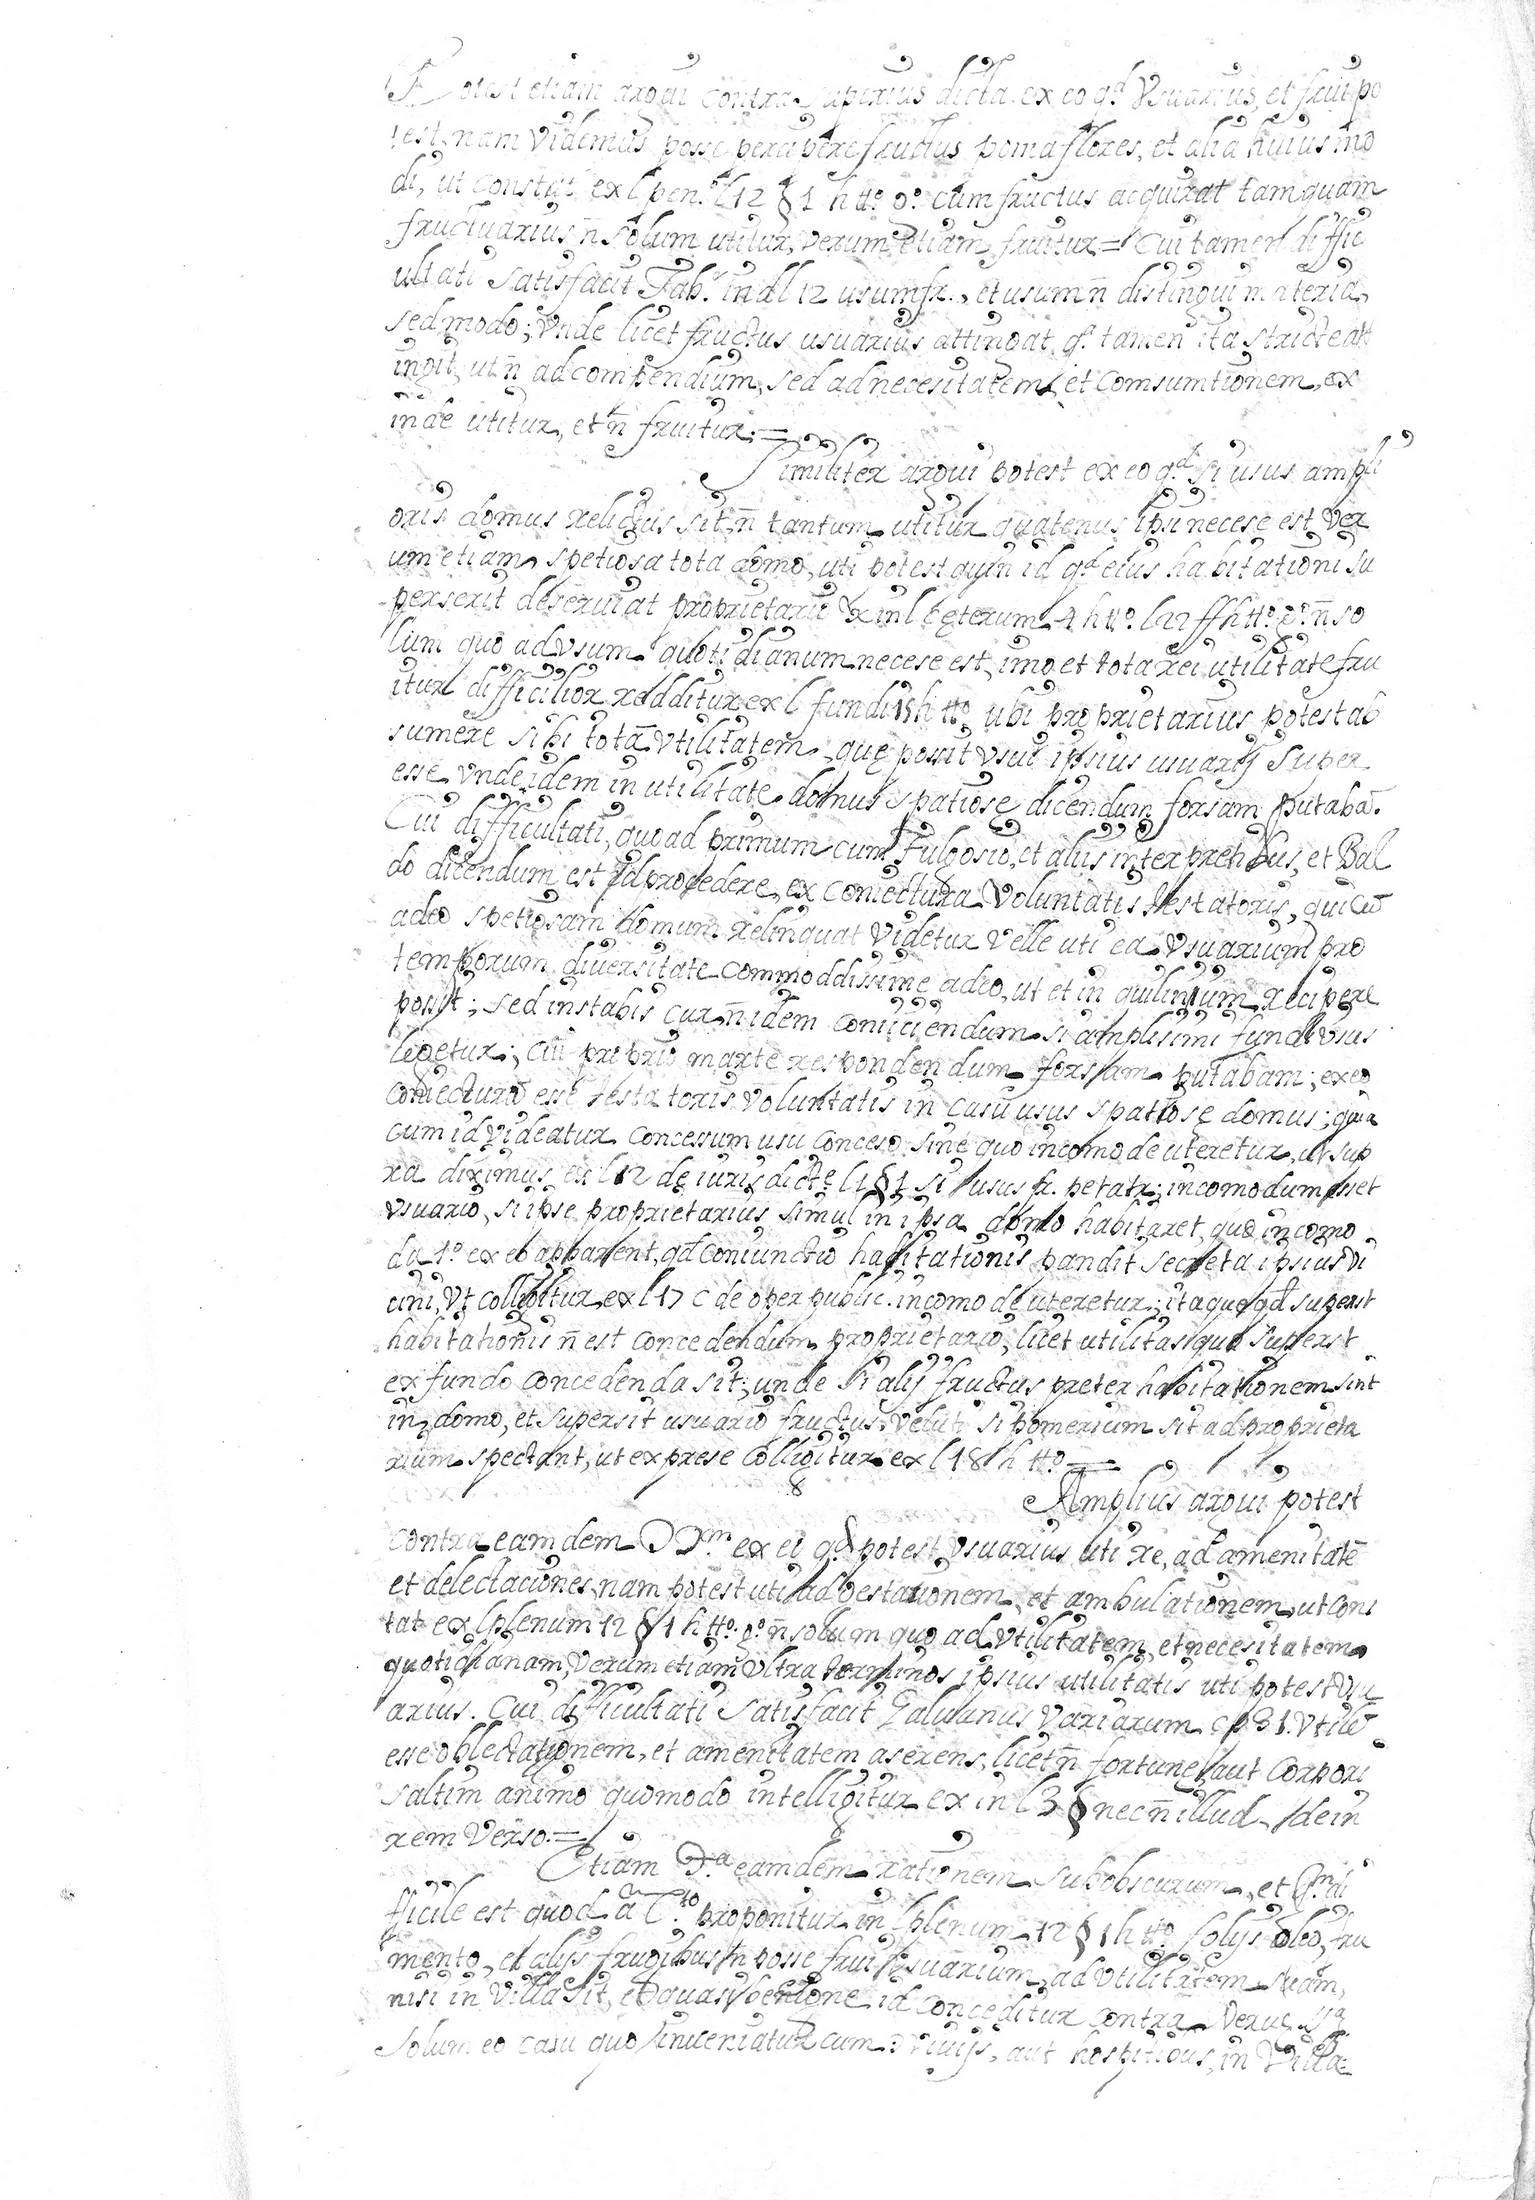 Potest etiam argui contra superius dicta ex eo qd Usuarius, et frui po
test, nam Videmus posse percipere fructus poma flores, et alia huiusmo
di, ut constat ex l pen.º l 12 § 1 h tt.º 9.º cum fructus acquirat tamquam
fructuarius n̄ solum utitur, verum etiam fruitur = Cui tamen diffic
ultati satisfacit Fab.r in d l 12 usumfr., et usum n̄ distingui materia,
sed modo; Unde licet fructus usuarius attingat, q.ª tamen ita stricte att
ingit, ut n̄ ad compendium, sed ad necesitatem, et comsumtionem, ex
inde utitur, et n̄ fruitur. =
Similiter argui potest ex eo qd si usus ampli
oris domus relictus sit, n̄ tantum utitur quatenus ipsi necese est, ver
um etiam spetiosa tota domo, uti potest quin id qd eius habitationi su
perserit deserviat proprietario ex in l cęterum 4 h tt.º l 22 ff h tt.º 9.º n̄ so
lum quo ad Usum quotidianum necese est, imo et tota rei utilitate fru
itur difficilior redditur ex l fundi 15 h tt.º ubi proprietarius potest ab
sumere sibi totā Utilitatem, quę possit Usui ipsius usuarij super
esse Unde idem in utilitate domus spatiosę dicendum forsam putabā.
Cui difficultati, quoad primum cum Fulgosio, et alijs interpretibus, et Bal
do dicendum est id procedere, ex coniectura Voluntatis testatoris, qui cū
adeo spetiosam domum relinquat Videtur Velle uti ea Usuarium pro
temporum diversitate commoddissime adeo, ut et in quilinium recipere
possit; sed instabis cur n̄ idem coniiciendum si amplisimi fundi Usus
legetur; cui proprio marte respondendum forsam putabam; ex eo
coniecturā esse testatoris voluntatis in casu usus spatiosę domus; quia
cum id Videatur concessum usu conceso sine quo incomode uteretur, ut sup
ra diximus ex l 12 de iurisdictę l 1 § 1 si usus fr. petatr; incomodum esset
Usuario, si ipse proprietarius simul in ipsa domo habitaret, quę incomo
da 1.º ex eo apparent, qd coniunctio habitationis pandit secreta ipsius vi
cini, Ut colligitur ex l 17 C de oper public. incomode uteretur; itaque qd superit
habitationis n̄ est concedendum proprietario, licet utilitas quę superest
ex fundo concedenda sit; unde si alij fructus preter habitationem sint
in domo, et supersit usuario fructus, velut si pomerium sit ad proprieta
rium spectant, ut exprese colligitur ex l 18 h tt.º =
Amplius argui potest
contra eamdem DD.m ex ei qd potest Usuarius uti re, ad amenitatē
et delectaciones, nam potest uti ad gestationem, et ambulationem, ut cons
tat ex l plenum 12 § 1 h tt.º 9.º n̄ solum quo ad Utilitatem, et necesitatem
quotidianam, verum etiam Ultra terminos ipsius utilitatis uti potest Usu
arius. Cui difficultati satisfacit Galvanus Variarum cp 31. Utilē
esse oblectationem, et amenitatem aserens, licet n̄ fortunę, aut Corpori
saltim animo quomodo intelligitur ex in l 3 § nec n̄ illud de in
rem Verso. =
Etiam D.ª eamdem rationem subobscurum, et q.m di
fficile est quod ā C.to proponitur in l plenum 12 § 1 h tt.º solijs oleo, fru
mento, et alijs frugibus n̄ posse frui Usuarium, ad Utilitatem suam,
nisi in Villa sit, et quasi id conceditur contra
solum eo casu quo inveniatur cum: , aut hospitibus, in Villa.